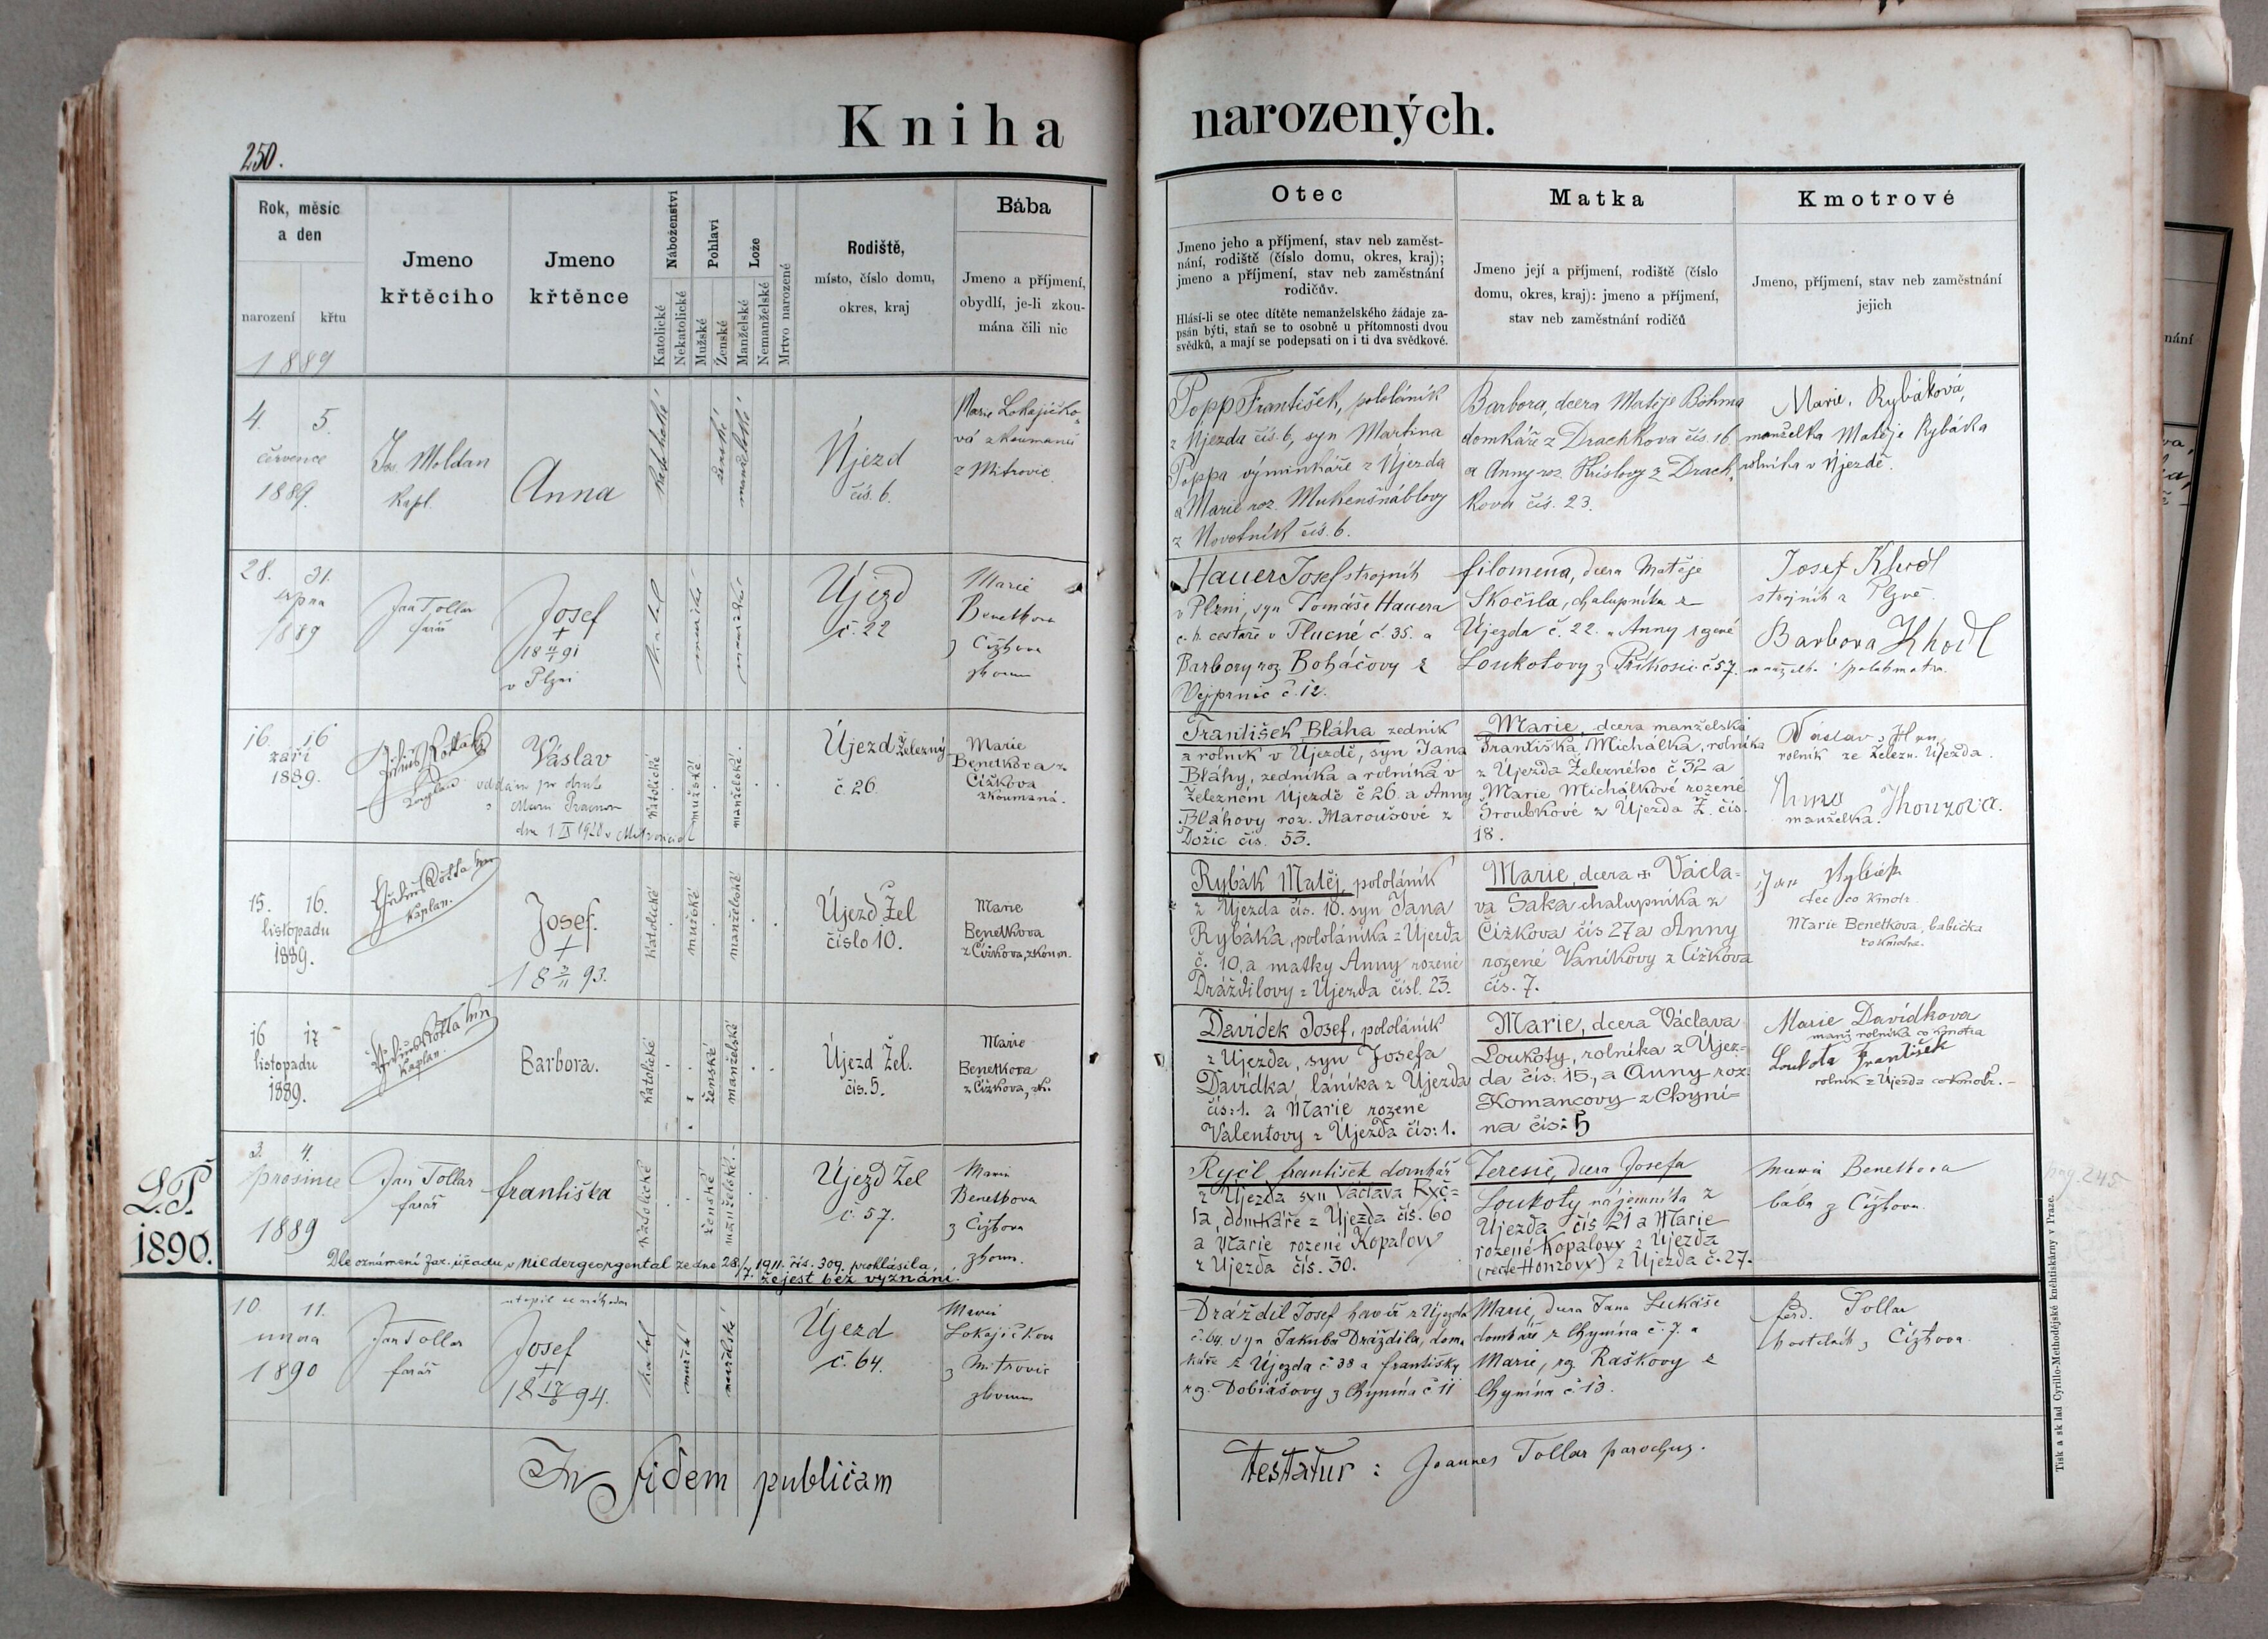 250.
Kniha narozených.
Rok, měsíc
a den
narození
křtu
1889
Jmeno
křtěcího
Jmeno
křtěnce
Náboženství
Katolické
Nekatolické
Pohlaví
Mužské
Ženské
Lože
Manželské
Nemanželské
Mrtvo narozené
Rodiště,
místo, číslo domu,
okres, kraj
Bába
Jmeno a příjmení,
obydlí, je-li zkou-
mána čili nic
Otec
Jmeno jeho a příjmení, stav neb zaměst-
nání, rodiště (číslo domu, okres, kraj);
jmeno a příjmení, stav neb zaměstnání
rodičův.
Hlásí-li se otec dítěte nemanželského žádaje za-
psán býti, staň se to osobně u přítomnosti dvou
svědků, a mají se podepsati on i ti dva svědkové.
Matka
Jmeno její a příjmení, rodiště (číslo
domu, okres, kraj): jmeno a příjmení,
stav neb zaměstnání rodičů
Kmotrové
Jmeno, příjmení, stav neb zaměstnání
jejich
4. 5.
července
1889.
Jos. Moldan
kapl.
Anna
katolické
ženské
manželské
Újezd
čís. 6.
Marie Lokajíčko-
vá zkoumaná
z Mitrovic.
Popp František, pololáník
z Újezda čís. 6, syn Martina
Poppa výminkáře z Újezda
a Marie roz.
z čís. 6.
Barbora, dcera Matěje Böhma
domkáře z Drachkova čís. 16
a Anny roz. z Drach-
kova čís. 23.
Marie Rybáková,
manželka Matěje Rybáka
rolníka v Újezdě.
28. 31.
srpna
1889
Jan Tollar
farář
Josef
+
18 91
v Plzni
Katol
mužské
manželské
Újezd
č. 22
Marie
Benetkova
z Čížkova
zkoum
Hauer Josef strojník
v Plzni, syn Tomáše Hauera
c. k. cestáře v Tlucné č. 35. a
Barbory roz. Boháčovy z
Vejprnic č. 12.
filomena, dcera Matěje
Skočila, chalupníka z
Újezda č. 22. a Anny rozené
Loukotovy z Příkosic č. 57.
Josef Khodl
strojník z Plzně.
Barbora Khodl
manželka spolukmotra.
16 16
září
1889.
Julius Kotta
kaplan
Václav
oddán
dne 1 IX 1920 v
Katolické
mužské
manželské.
Újezd Železný
č. 26.
Marie
Benetkova z
Čížkova
zkoumaná.
František Bláha zedník
a rolník v Újezdě, syn Jana
Bláhy, zedníka a rolníka v
Železném Újezdě č 26. a Anny
Bláhovy roz. Maroušové z
Dožic čís. 53.
Marie, dcera manželská
Františka Michálka, rolníka
z Újezda Železného č 32 a
Marie Michálkové rozené
Šroubkové z Újezda Ž. čís.
18.
Václav
rolník ze Železn. Újezda.
manželka.
15. 16.
listopadu
1889.
Julius Kotta
kaplan.
Josef.
+
18 93.
Katolické
mužské
manželské
Újezd Žel
číslo 10.
Marie
Benetkova
z Čížkova, zkoum.
Rybák Matěj, pololáník
z Újezda čís. 10. syn Jana
Rybáka, pololáníka z Újezda
č. 10, a matky Anny rozené
Dráždilovy z Újezda čísl. 23.
Marie, dcera + Václa-
va Saka chalupníka z
Čížkova čís 27 a Anny
rozené Vaníkovy z Čížkova
čís. 7.
Jan Rybák
co kmotr.
Marie Benetkova, babička
co kmotra.
16 17
listopadu
1889.
Julius Kotta
kaplan.
Barbora.
Katolické
ženské
manželské
Újezd Žel.
čís. 5.
Marie
Benetkova
z Čížkova, zk.
Davídek Josef, pololáník
z Újezda, syn Josefa
Davídka, láníka z Újezda
čís: 1. a Marie rozené
Valentovy z Újezda čís: 1.
Marie, dcera Václava
Loukoty, rolníka z Újez-
da čís. 15, a Anny roz.
Komancovy z Chyní-
na čís: 5
Marie Davídkova
manž. rolníka co kmotra
Loukota František
rolník z Újezda co kmotr.
L.P.
1890.
3. 4.
prosince
1889
Jan Tollar
farář
františka
Katolické
ženské
manželské.
Újezd Žel
č. 57.
Marie
Benetkova
z Čížkova
zkoum.
Dle oznámení far. úřadu v Niedergeorgental ze dne 28./7. 1911. čís. 309. prohlásila,
že jest bez vyznání.
Ryčl františek domkář
z Újezda syn Václava Ryč-
la, domkáře z Újezda čís. 60
a Marie rozené Kopalovy
z Újezda čís. 30.
Teresie, dcera Josefa
Loukoty nájemníka z
Újezda čís 21 a Marie
rozené Kopalovy z Újezda
(recte Honzovy) z Újezda č. 27.
Marie Benetkova
bába z Čížkova.
pag. 245
10. 11.
února
1890
Jan Tollar
farář
utopil se náhodou
Josef
+
18 94.
Katol
mužské
manželské
Újezd
č. 64.
Marie
Lokajíčkova
z Mitrovic
zkoum
Dráždil Josef havíř z Újezda
č. 64. syn Jakuba Dráždila, dom-
káře z Újezda č 38 a františky
roz. Dobiášovy z Chynína č 11
Marie, dcera Jana Lukáše
domkáře z Chynína č. 7. a
Marie, roz Raškovy z
Chynína č 13.
ferd. Tollar
kostelník z Čížkova.
In fidem publicam
testatur: Joannes Tollar parochus.
Tisk a sklad Cyrillo-Methodějské knihtiskárny v Praze.